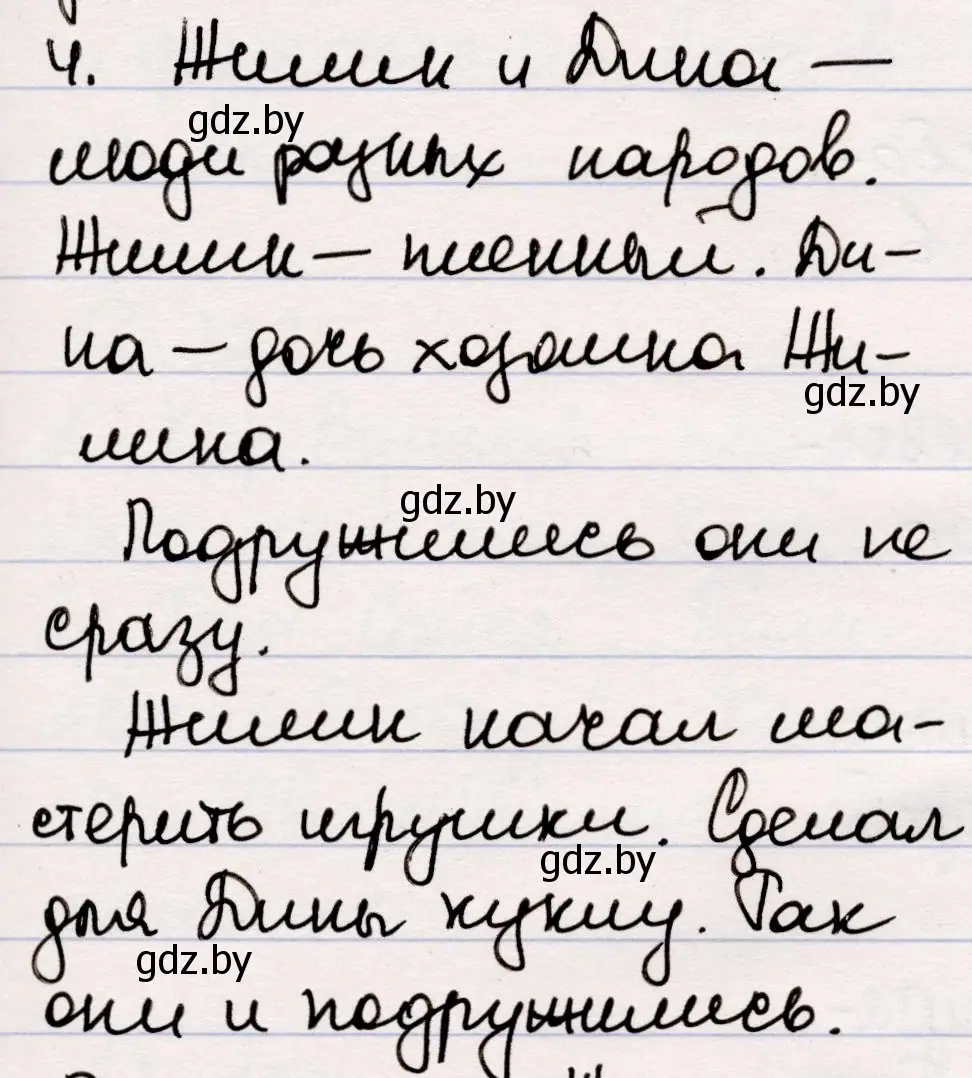 4. Жилин и Дина —
gdz.by
люди разных народов.
Жилин — пленный. Ди-
на — дочь хозяина Жи-
gdz.by
лина.
gdz.by
Подружились они не
сразу.
Жилин начал ма-
стерить игрушки. Сделал
gdz.by
для Дины куклу. Так
gdz.by
они и подружились.